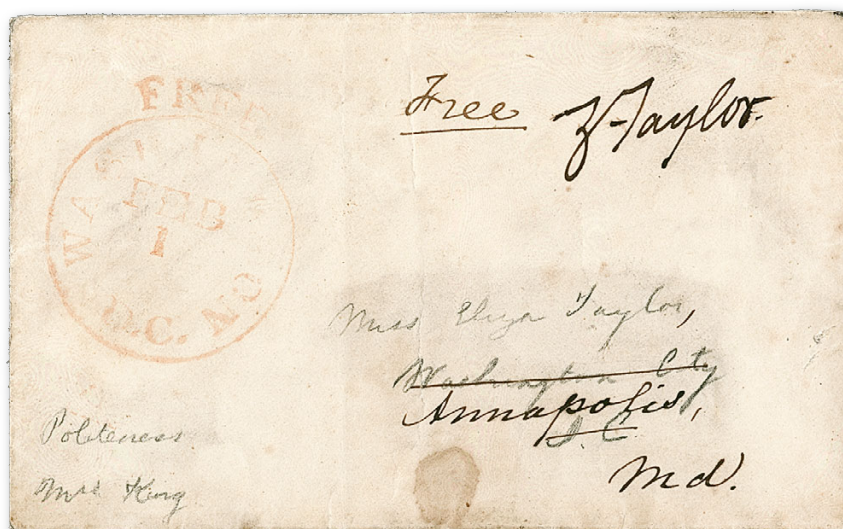 FREE
WASHIN
FEB
1
D.C.
Free Z Taylor.
Miss Eliza Taylor,
Washington City
Annapolis,
D.C.
Md.
Politeness
Mrs King